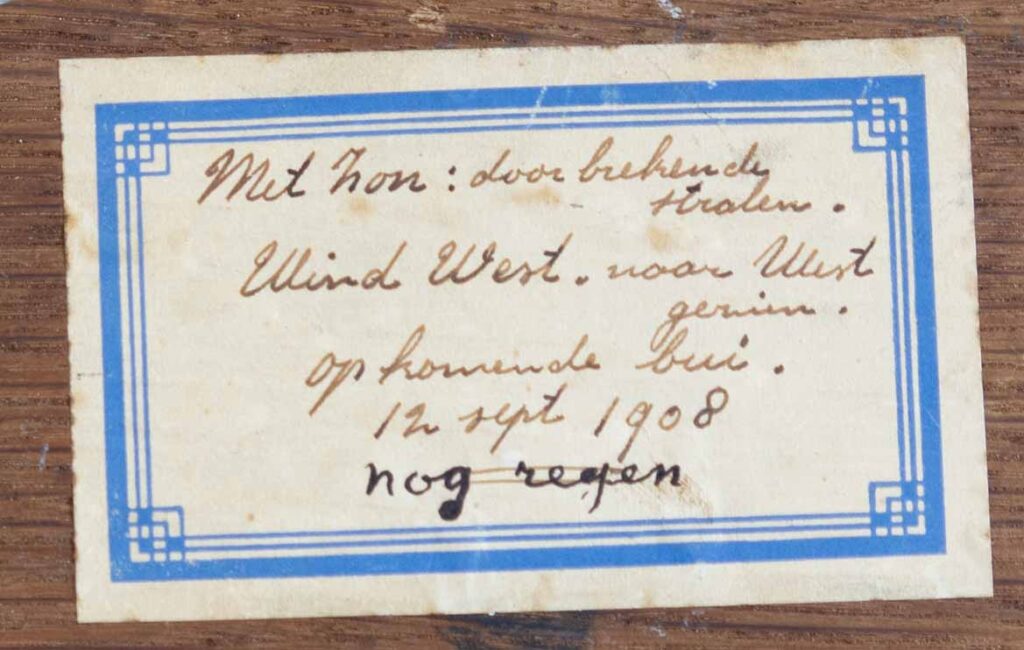 Met Zon : doorbrekende
stralen .
Wind West . naar West
gezien .
opkomende bui .
12 sept 1908
nog regen